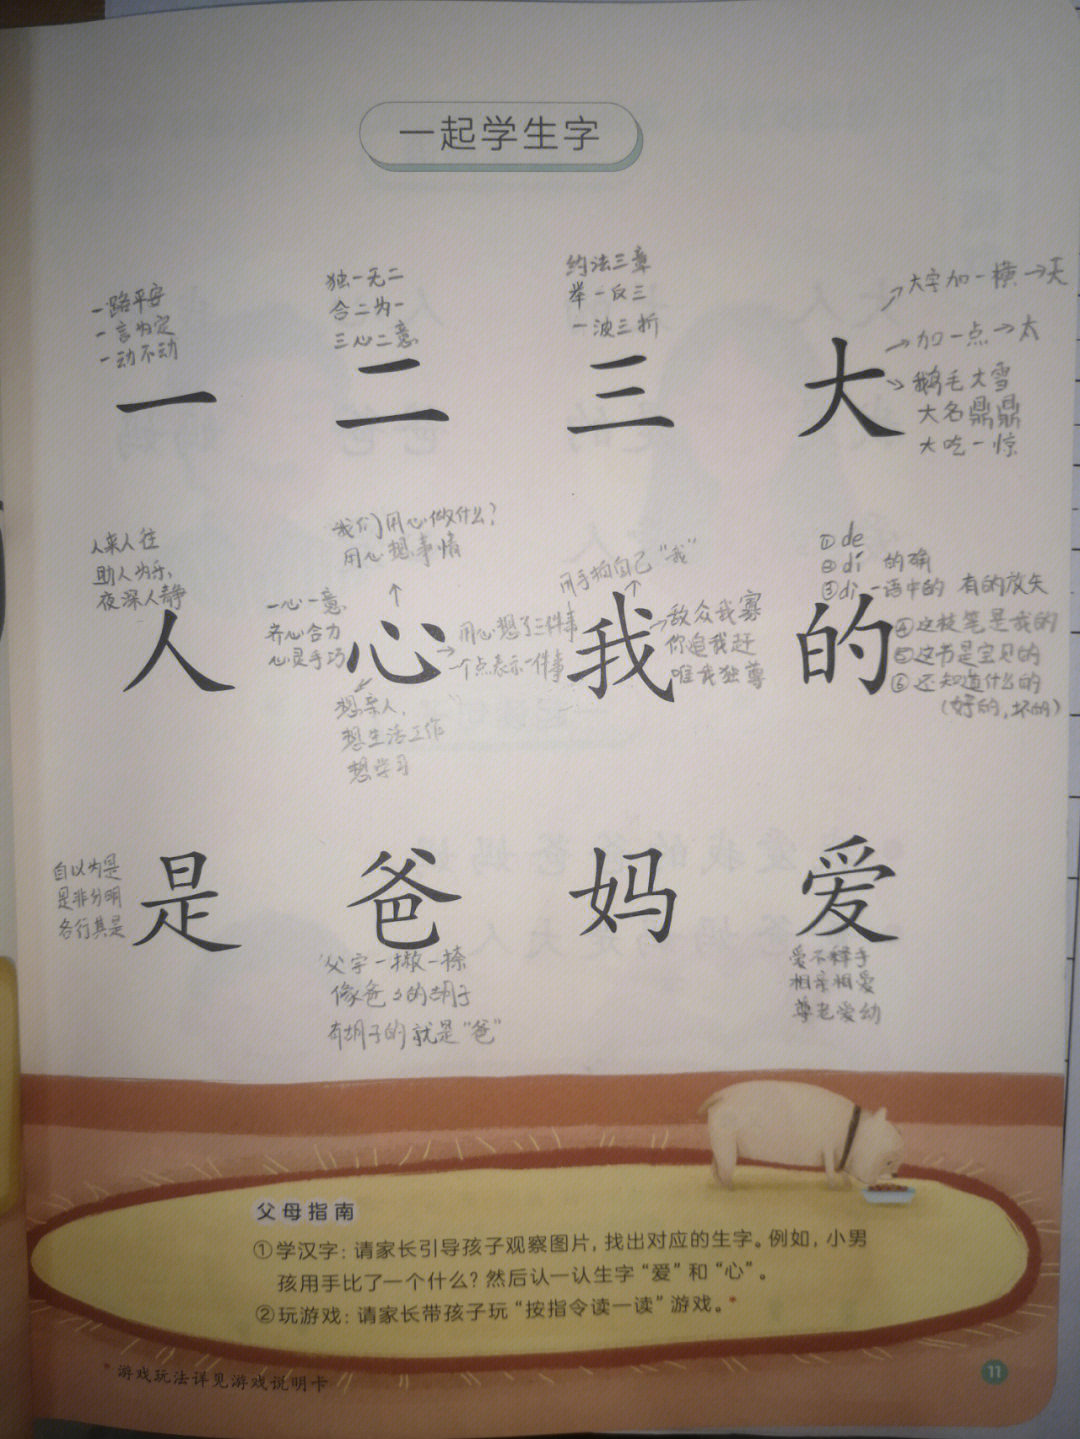 一起学生字
一路平安
一言为定
一动不动
独一无二
合二为一
三心二意
约法三章
举一反三
一波三折
大字加一横→天
加一点→太
鹅毛大雪
大名鼎鼎
大吃一惊
一 二 三 大
人来人往
助人为乐
夜深人静
我们用心做什么?
用心想事情
一心一意
齐心合力
心灵手巧
用心想了三件事
一个点表示一件事
想亲人,
想生活工作
想学习
用手指自己“我”
敌众我寡
你追我赶
唯我独尊
①de
②dí 的确
③dì 一语中的 有的放矢
④这枝笔是我的
⑤这书是宝贝的
⑥还知道什么的
(好的,坏的)
人 心 我 的
自以为是
是非分明
各行其是
是 爸 妈 爱
父字一撇一捺
像爸爸的胡子
有胡子的就是“爸”
爱不释手
相亲相爱
尊老爱幼
父母指南
①学汉字:请家长引导孩子观察图片,找出对应的生字。例如,小男
孩用手比了一个什么?然后认一认生字“爱”和“心”。
②玩游戏:请家长带孩子玩“按指令读一读”游戏。*
*游戏玩法详见游戏说明卡
11